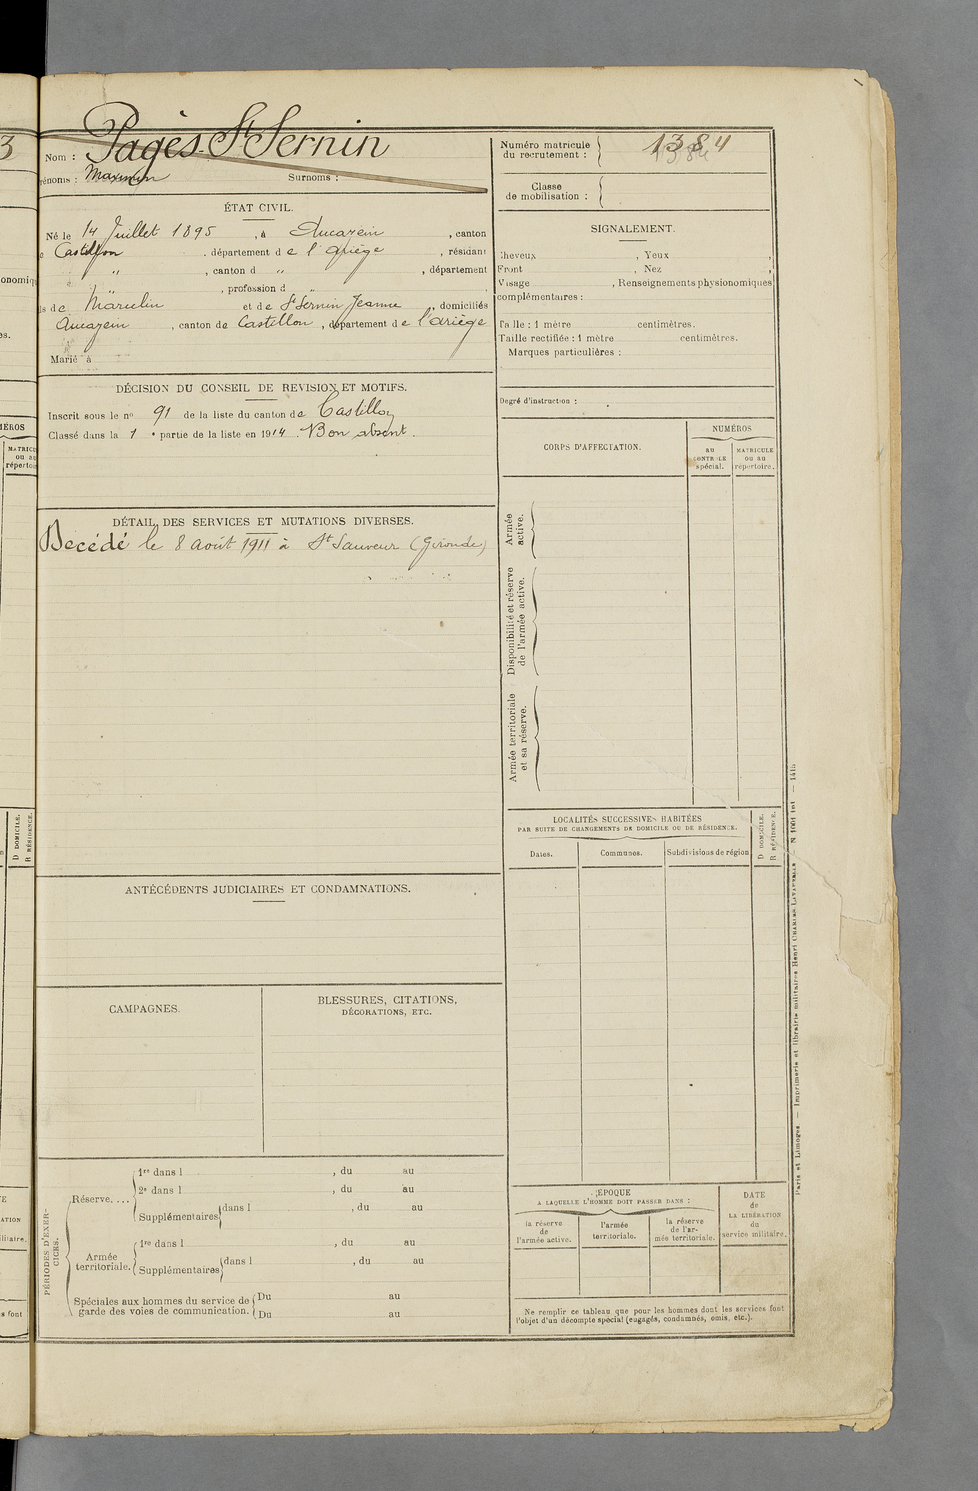 3
Nom : Pagès-St Sernin
rénoms : Maximin Surnoms :
ÉTAT CIVIL.
Né le 14 Juillet 1895 , à Aucazein , canton
e Castillon , département de l'Ariège , résidant
" , canton d " , département
" , profession d " ,
ls de Marcelin et de St Sernin Jeanne , domiciliés
Aucazein , canton de Castillon , département de l'ariège
Marié à
DÉCISION DU CONSEIL DE REVISION ET MOTIFS.
Inscrit sous le no 91 de la liste du canton de Castillon
Classé dans la 1e partie de la liste en 1914 . Bon absent.
DÉTAIL DES SERVICES ET MUTATIONS DIVERSES.
Décédé le 8 août 1911 à St Sauveur (Gironde)
ANTÉCÉDENTS JUDICIAIRES ET CONDAMNATIONS.
CAMPAGNES.
BLESSURES, CITATIONS,
DÉCORATIONS, ETC.
PÉRIODES D'EXER-
CICES.
Réserve. . . .
1re dans l , du au
2e dans l , du au
Supplémentaires dans l , du au
Armée
territoriale.
1re dans l , du au
Supplémentaires dans l , du au
Spéciales aux hommes du service de
garde des voies de communication.
Du au
Du au
Numéro matricule
du recrutement :
1384
Classe
de mobilisation :
SIGNALEMENT.
Cheveux , Yeux ,
Front , Nez ,
Visage , Renseignements physionomiques
complémentaires :
Taille : 1 mètre centimètres.
Taille rectifiée : 1 mètre centimètres.
Marques particulières :
Degré d'instruction :
CORPS D'AFFECTATION.
NUMÉROS
au
CONTRÔLE
spécial.
MATRICULE
ou au
répertoire.
Armée
active.
Disponibilité et réserve
de l'armée active.
Armée territoriale
et sa réserve.
LOCALITÉS SUCCESSIVES HABITÉES
PAR SUITE DE CHANGEMENTS DE DOMICILE OU DE RÉSIDENCE.
Dates.
Communes.
Subdivisions de région
D DOMICILE.
R RÉSIDENCE.
ÉPOQUE
A LAQUELLE L'HOMME DOIT PASSER DANS :
la réserve
de
l'armée active.
l'armée
territoriale.
la réserve
de l'ar-
mée territoriale.
DATE
de
LA LIBÉRATION
du
service militaire.
Ne remplir ce tableau que pour les hommes dont les services font
l'objet d'un décompte spécial (engagés, condamnés, omis, etc.).
Paris et Limoges. — Imprimerie et librairie militaires Henri CHARLES-LAVAUZELLE